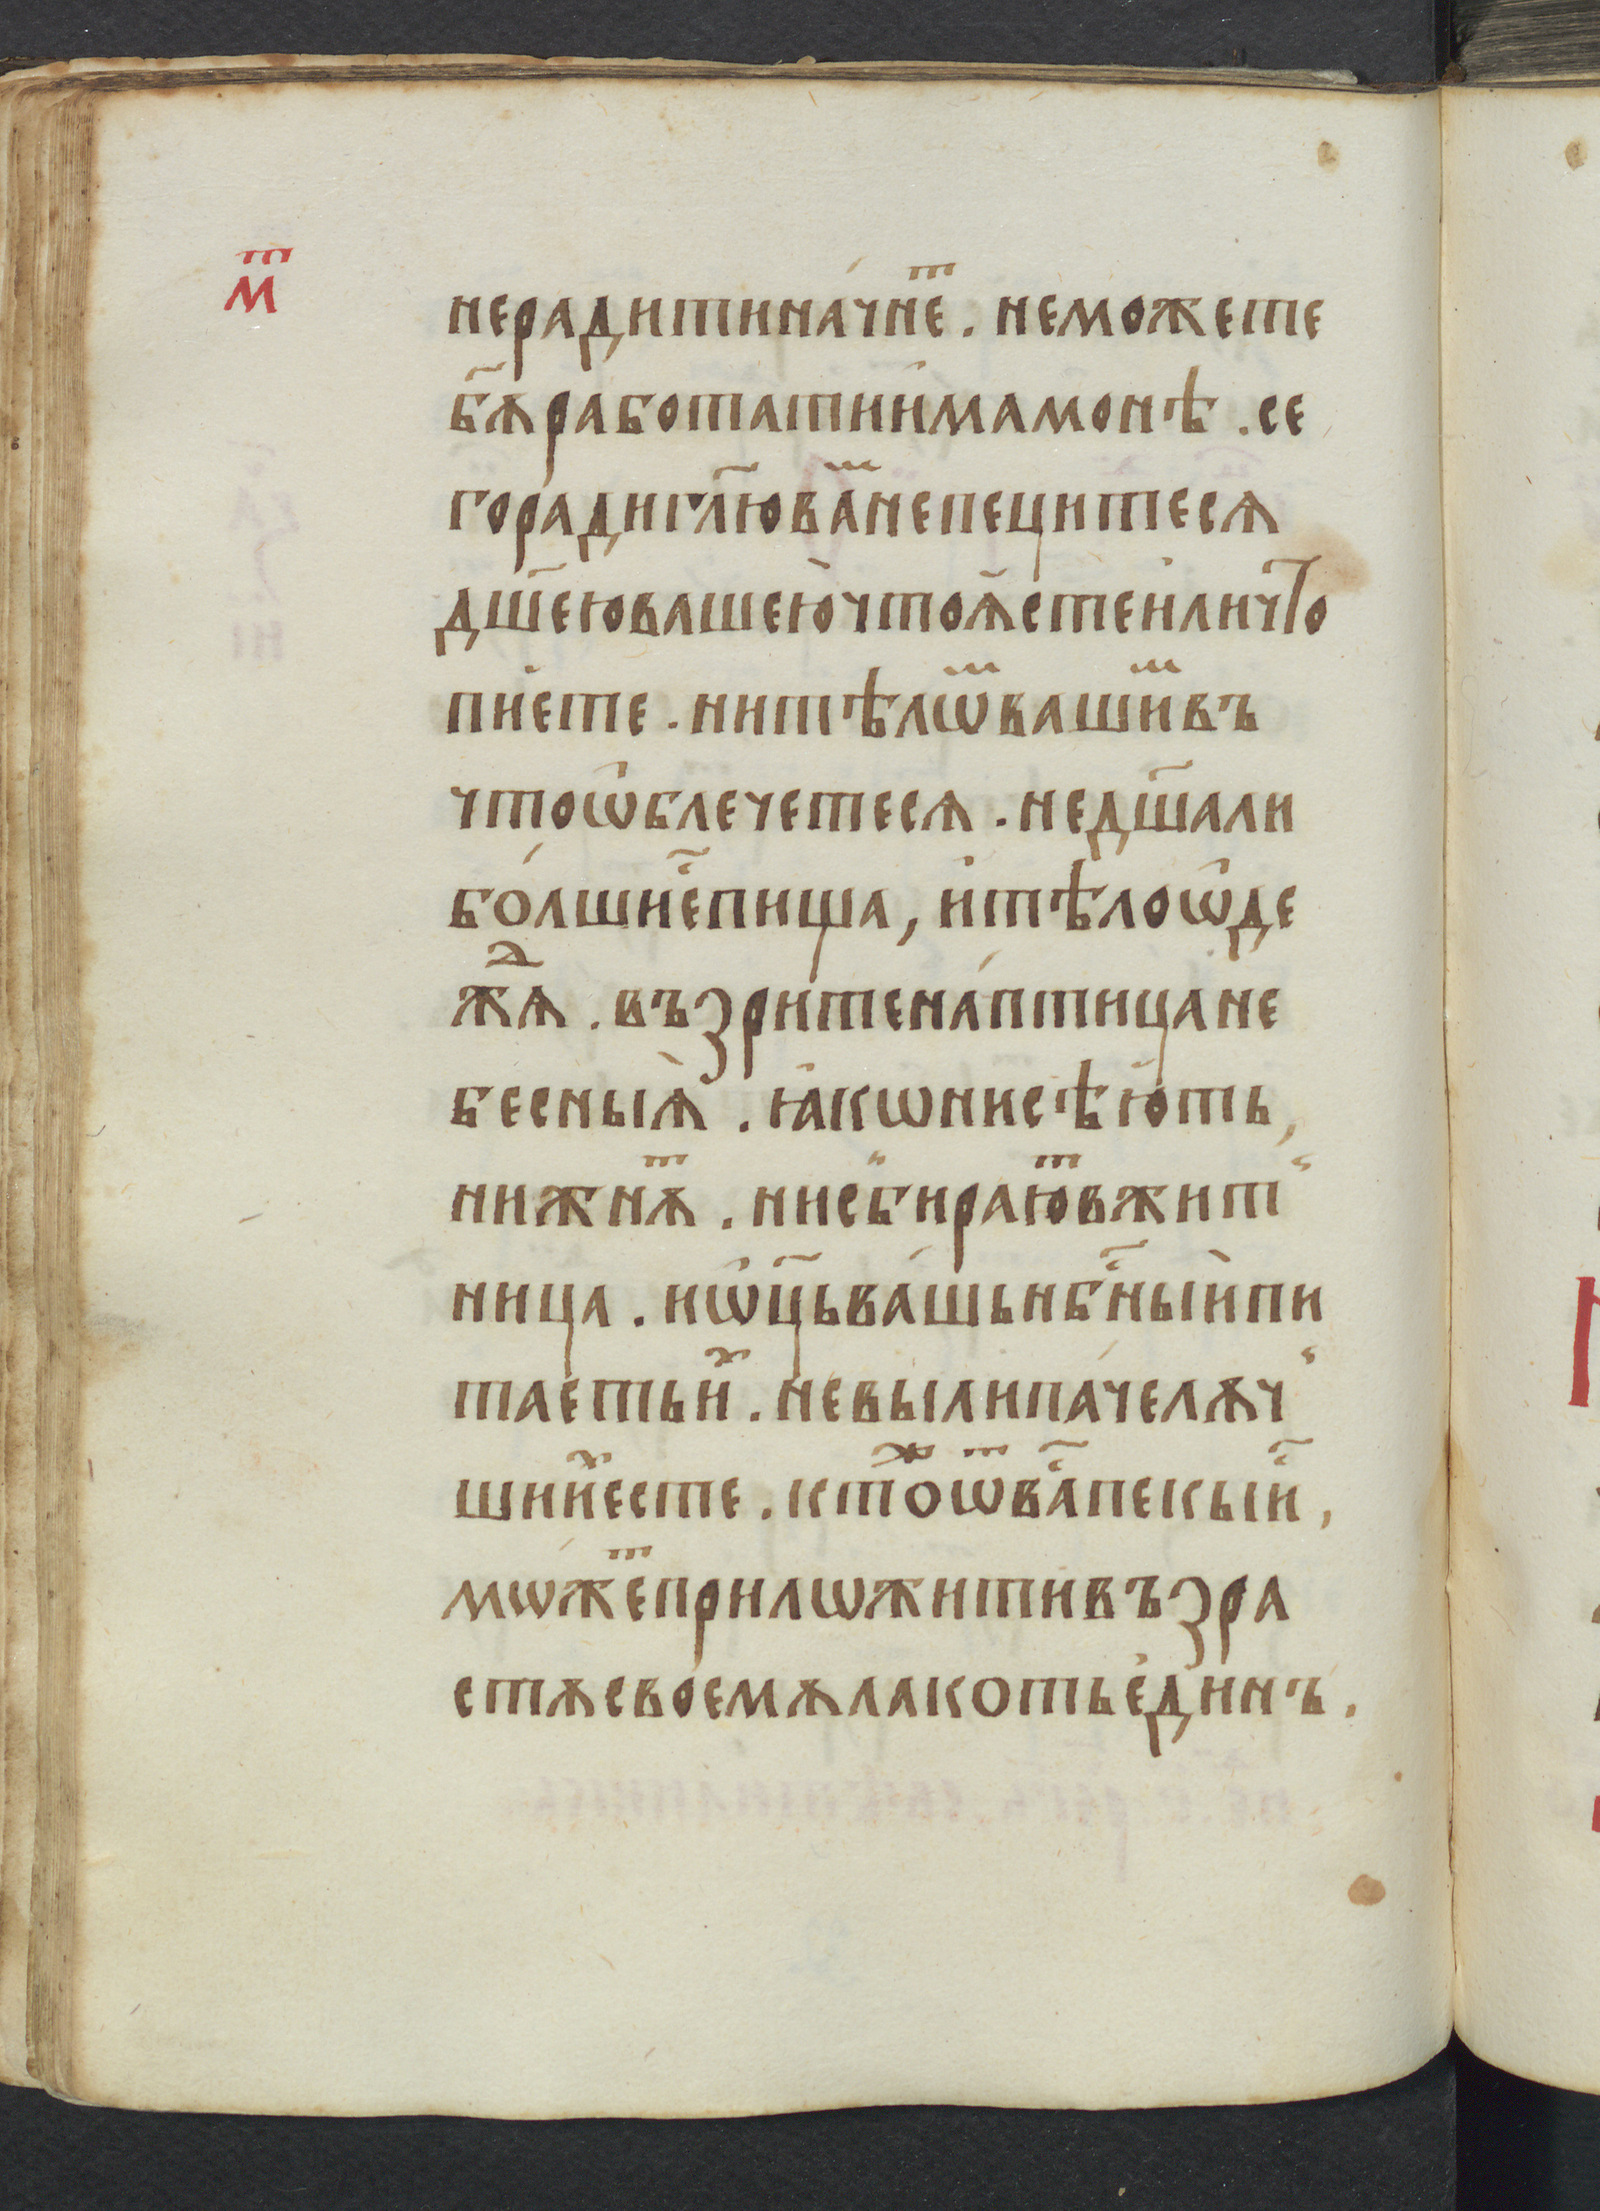 мⷮ
нерадитинáчнеⷮ. неможете
бг҃ѫработатиимамонѣ. се
горадигл҃ювⷨанепецитесѧ
дш҃еювашеючтоꙗстеиличⷮо
пиете. нитѣлѡⷨвашиⷨвъ
чтоѡблечетесѧ. недш҃али
бо́лшиⷭ҇епища, итѣлоѡде
жⷣѧ. възритена́птицане
бесныѧ. ꙗкѡнисѣють,
нижнѧⷮ. нисⸯбираюⷮвжитⸯ
ница. иѡц҃ьва́шьнбⷭ҇ныипи
таетьиⷯ. невылипа́челѫчⸯ
шииⷯесте. ктоⷤѡⷮваⷭ҇пекыиⷭ҇,
мѡжеⷮприлѡжитивъзра
стѫсвоемѫлакотьединъ.